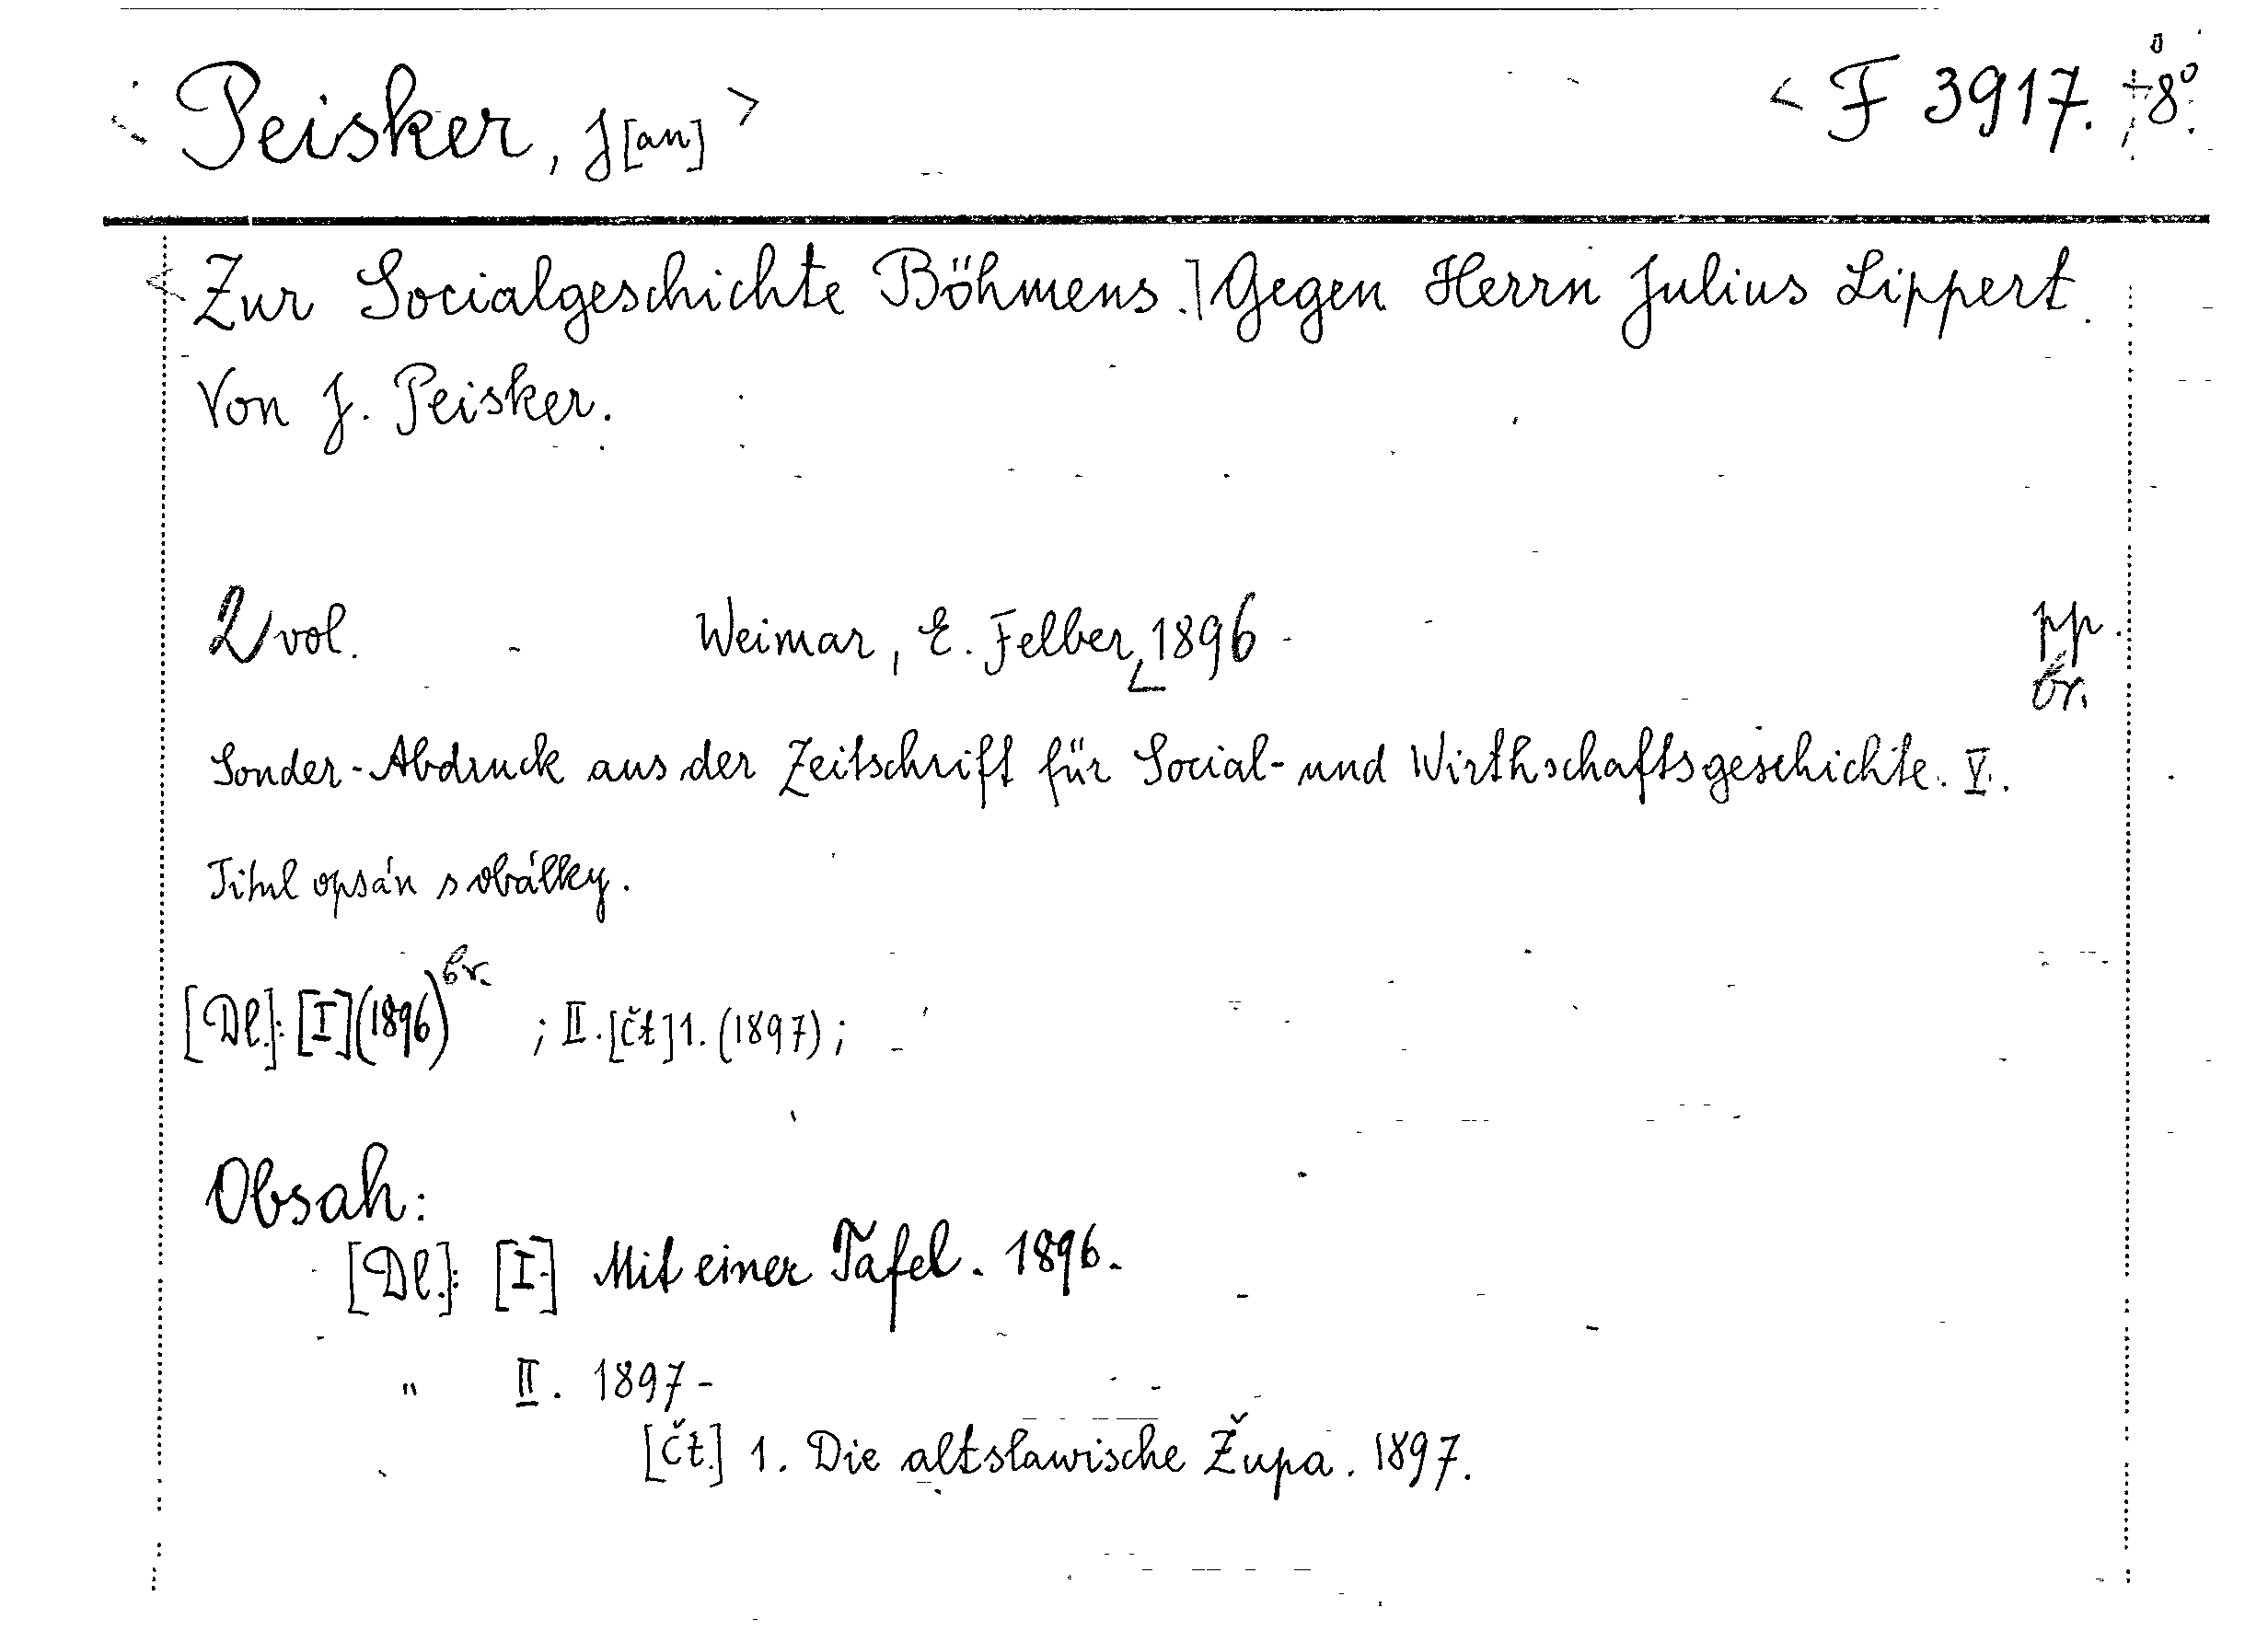 Peisker, J[an] > < F 3917. 8°
< Zur Socialgeschichte Böhmens.] Gegen Herrn Julius Lippert.
Von J. Peisker.
2 vol. Weimar, E. Felber, 1896 - pp.
br.
Sonder-Abdruck aus der Zeitschrift für Social- und Wirthschaftsgeschichte. V.
Titul opsán s obálky.
[Dl.]: [I] (1896) br. ; II. [Čt] 1. (1897) ;
Obsah:
[Dl.]: [I.] Mit einer Tafel. 1896.
" II. 1897 -
[Čt.] 1. Die altslawische Župa. 1897.